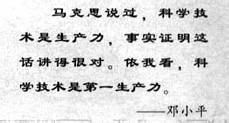 马克思说过，科学技
术是生产力，事实证明这
话讲得很对。依我看，科
学技术是第一生产力。
——邓小平